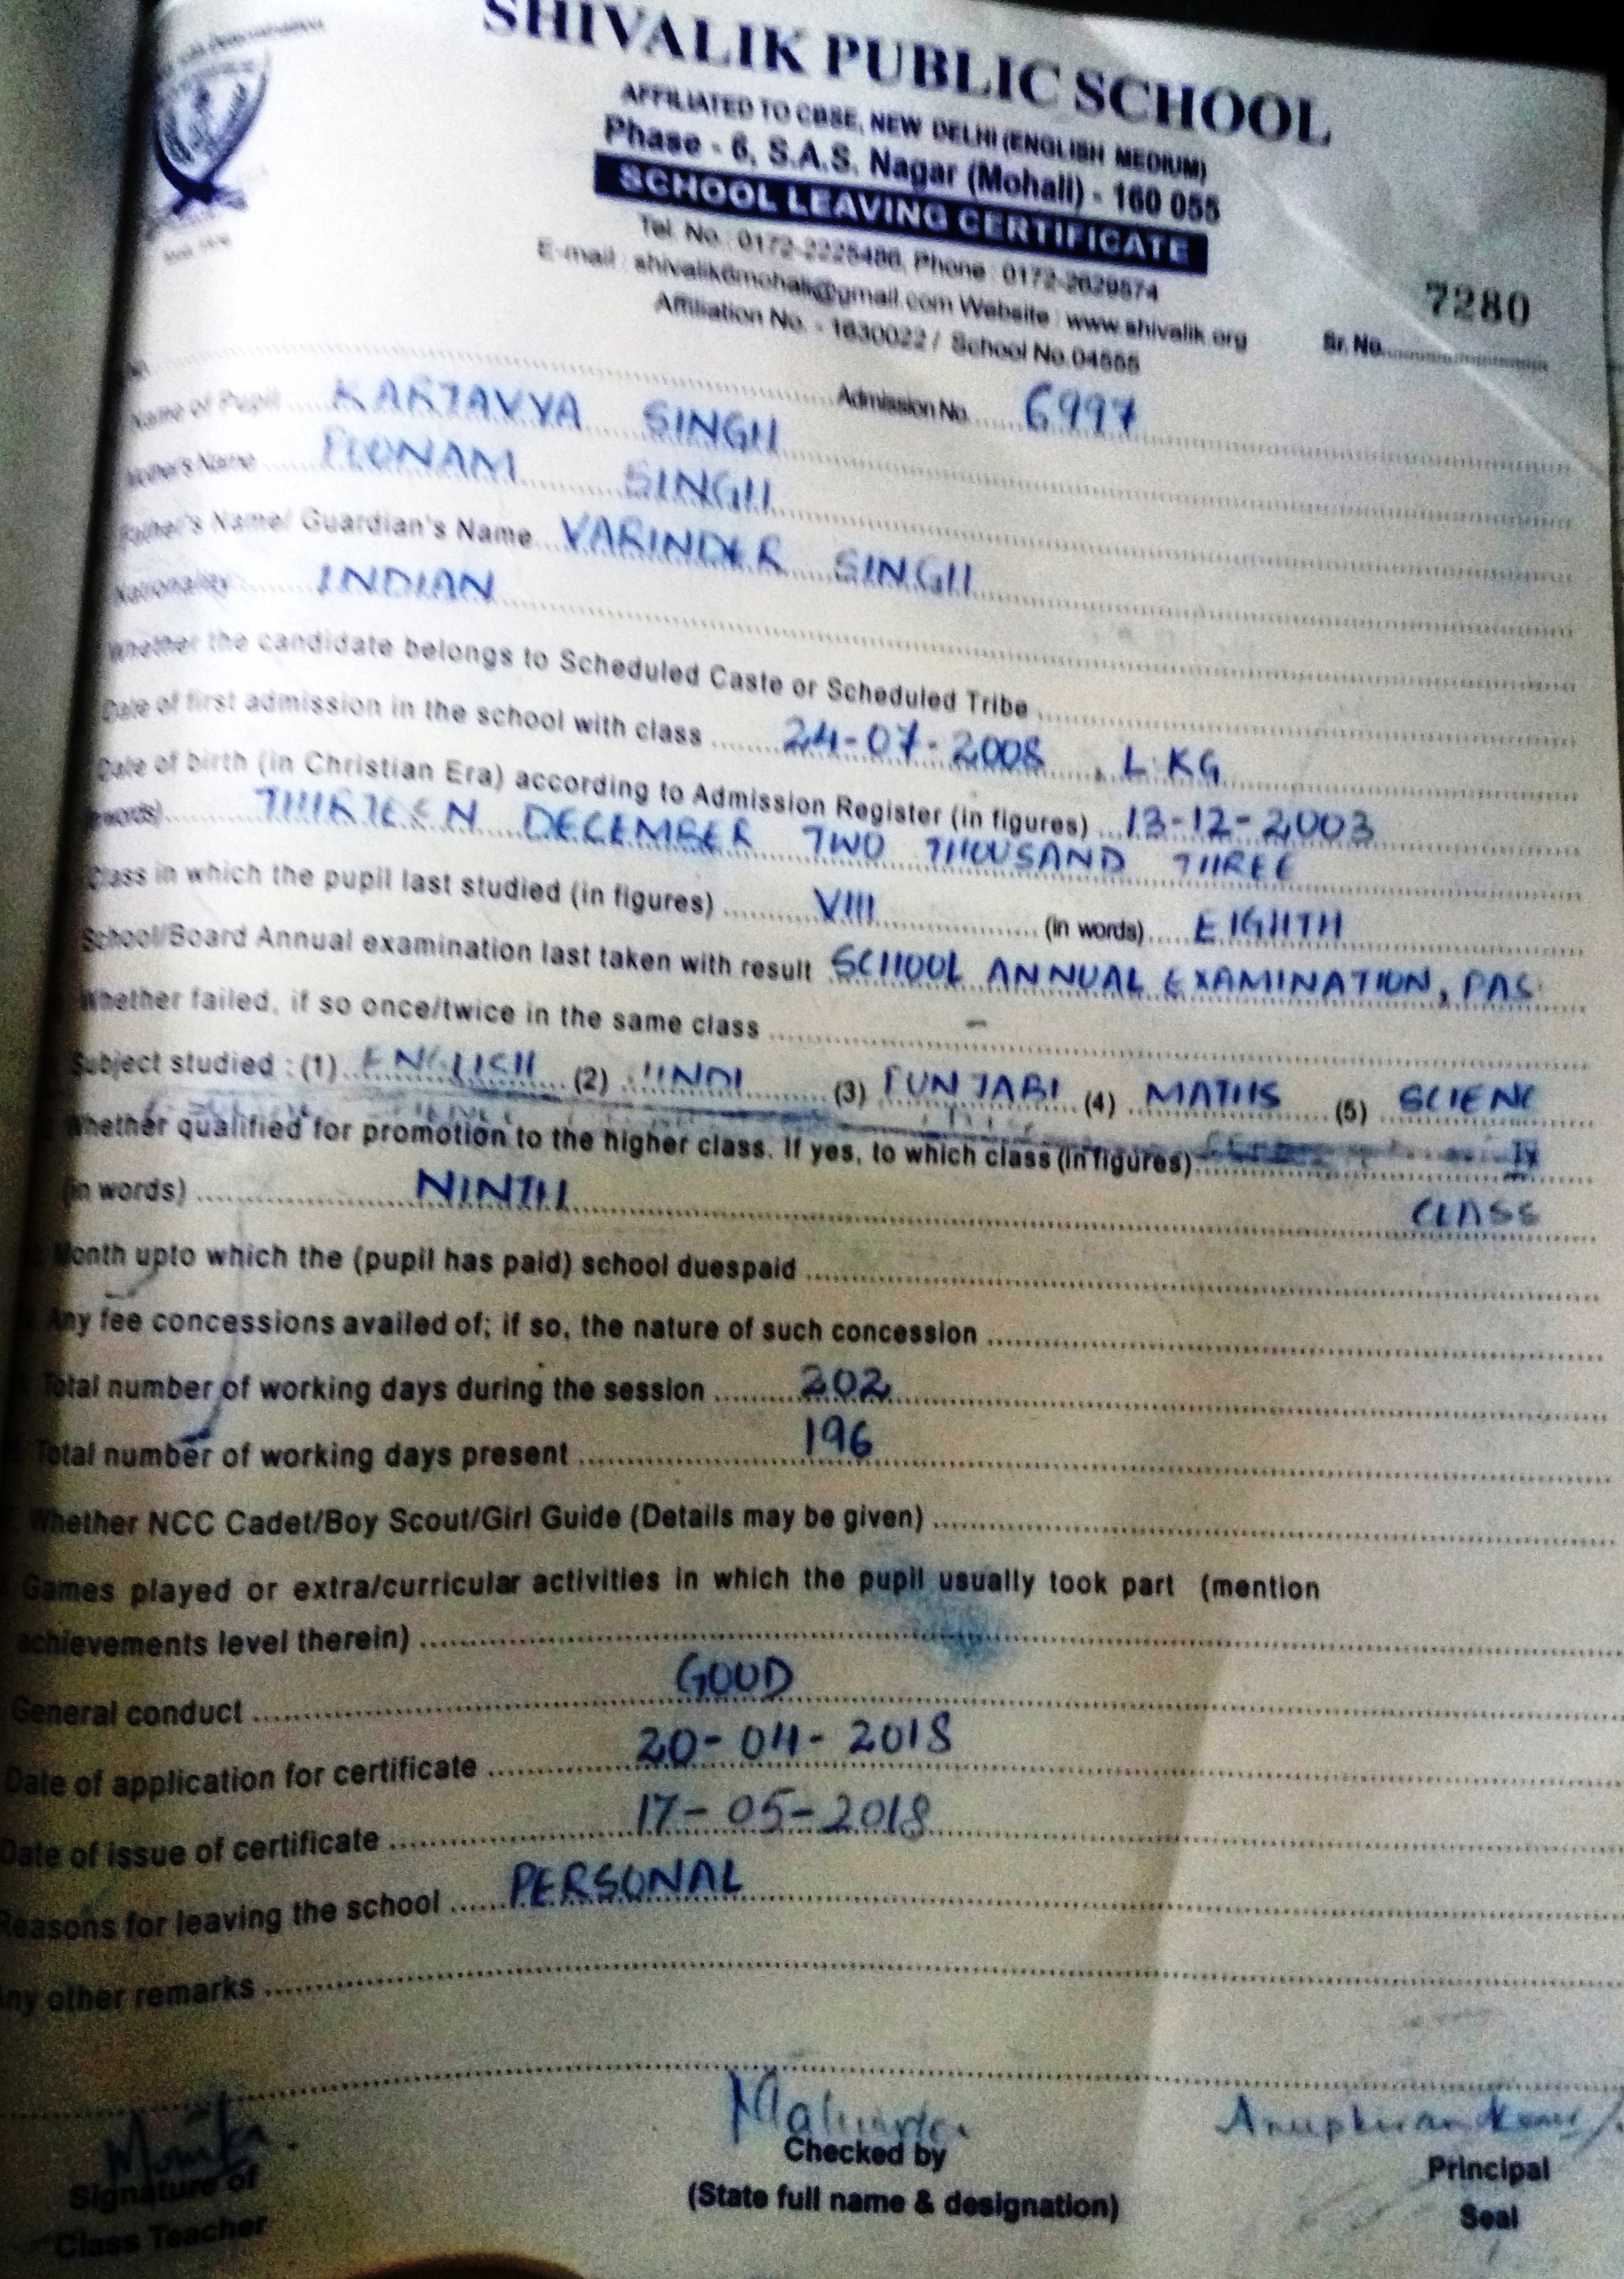 SHIVALIK PUBLIC SCHOOL
AFFILIATED TO CBSE, NEW DELHI (ENGLISH MEDIUM)
Phase - 6, S.A.S. Nagar (Mohali) - 160 055
SCHOOL LEAVING CERTIFICATE
Tel. No.: 0172-2225486, Phone : 0172-2629574
E-mail : shivalik6mohali@gmail.com Website : www.shivalik.org
Affiliation No. - 1630022 / School No.04555
7280
Sr. No.
Admission No. 6997
Name of Pupil KARTAVYA SINGH
Mother's Name POONAM SINGH
Father's Name/ Guardian's Name VARINDER SINGH
Nationality INDIAN
Whether the candidate belongs to Scheduled Caste or Scheduled Tribe
Date of first admission in the school with class 24-07-2008, LKG
Date of birth (in Christian Era) according to Admission Register (in figures) 13-12-2003
words) THIRTEEN DECEMBER TWO THOUSAND THREE
Class in which the pupil last studied (in figures) VIII (in words) EIGHTH
School/Board Annual examination last taken with result SCHOOL ANNUAL EXAMINATION, PAS
Whether failed, if so once/twice in the same class -
Subject studied : (1) ENGLISH (2) HINDI (3) PUNJABI (4) MATHS (5) SCIENC
Whether qualified for promotion to the higher class. If yes, to which class (in figures) IX
(in words) NINTH CLASS
Month upto which the (pupil has paid) school duespaid
Any fee concessions availed of; if so, the nature of such concession
Total number of working days during the session 202
Total number of working days present 196
Whether NCC Cadet/Boy Scout/Girl Guide (Details may be given)
Games played or extra/curricular activities in which the pupil usually took part (mention
achievements level therein)
General conduct GOOD
Date of application for certificate 20-04-2018
Date of issue of certificate 17-05-2018
Reasons for leaving the school PERSONAL
Any other remarks
Signature of
Class Teacher
Checked by
(State full name & designation)
Principal
Seal